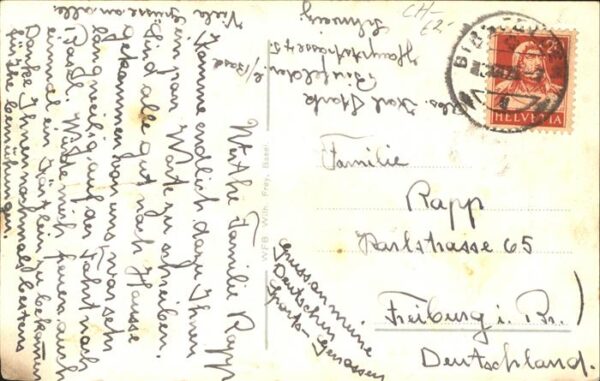 Werthe Familie Rapp
Komme endlich dazu Ihnen
ein paar Worte zu schreiben.
Sind alle gut nach Hausse
gekommen von uns war sehr
langweilig auf der Fahrt nach
Basel. Würde mich freuen auch
einmal ein Kärtlein zu bekommen
Danke Ihnen nochmals bestens
für Ihre bemühungen.
Viele Grüsse an alle.
Abs. Karl Stark
Hauptstrasse 45
Schweiz
WFB Wilh. Frey, Basel
CH-
Familie
Rapp
Karlstrasse 65
Freiburg i. Br.
Deutschland.
Gruss an meine
Deutschen
Sports-Genossen
HELVETIA